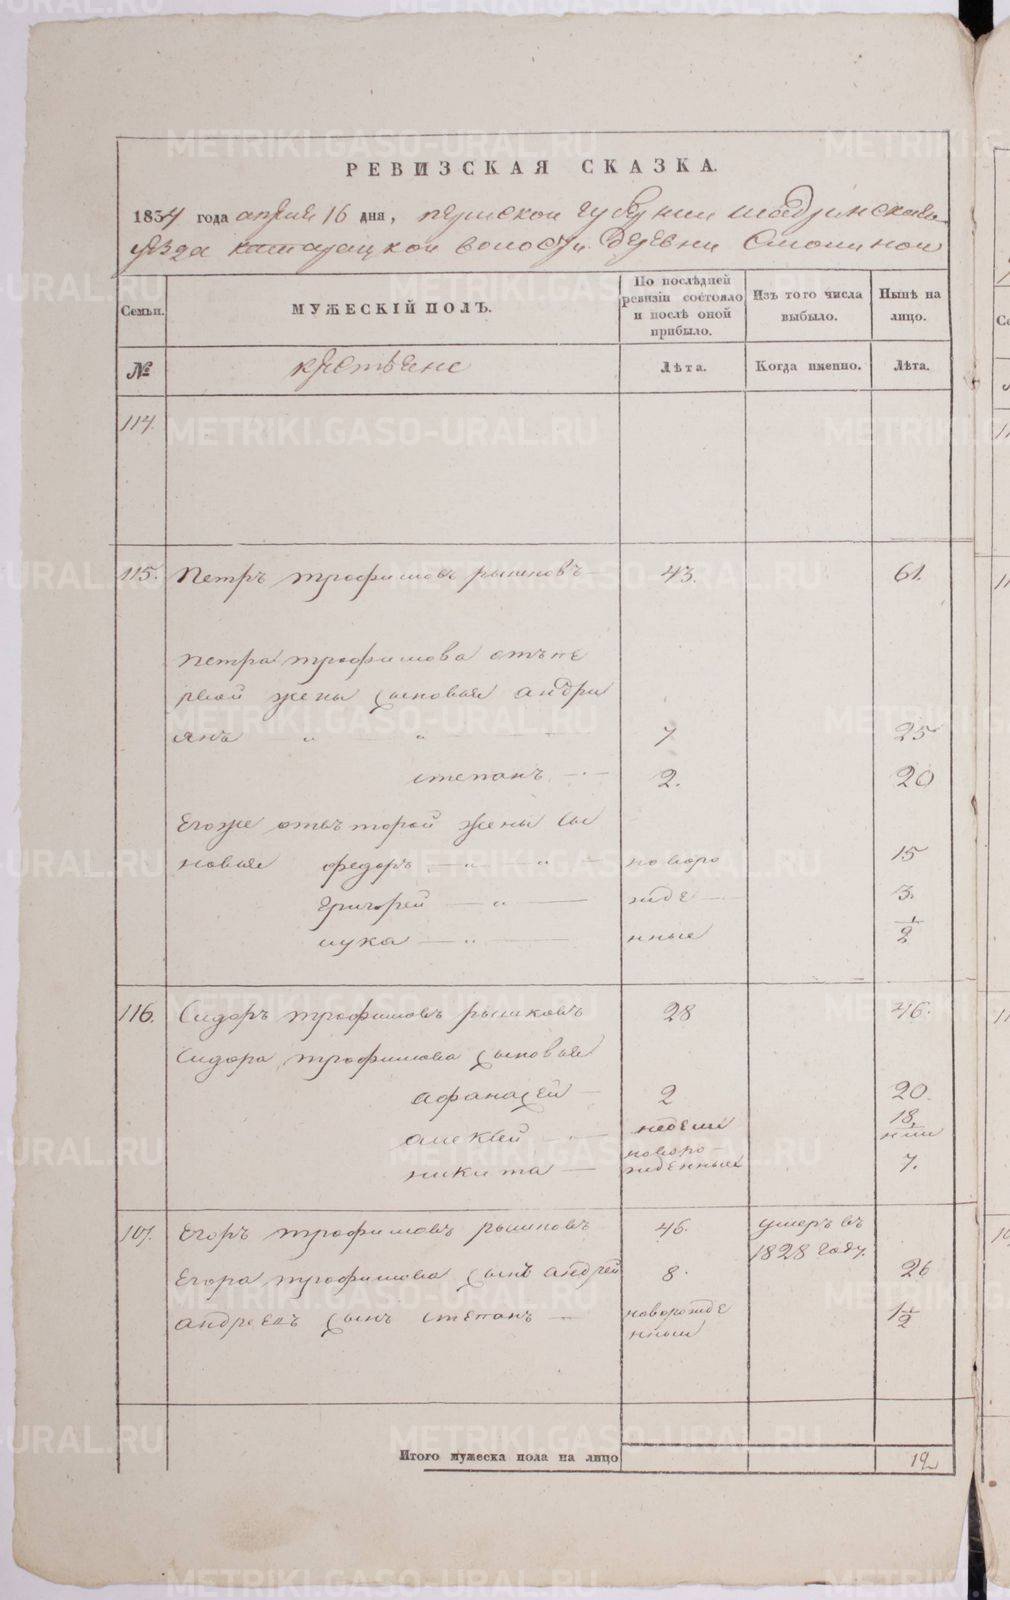 РЕВИЗСКАЯ СКАЗКА.
1834 года апреля 16 дня, пермской губернии шадринскаго
уѣзда катайской волости деревни
Семьи. МУЖЕСКІЙ ПОЛЪ. По послѣдней ревизіи состояло и послѣ оной прибыло. Изъ того числа выбыло. Нынѣ на лицо.
№ крестьяне Лѣта. Когда именно. Лѣта.
114.
115. Петръ трофимовъ рышковъ 43. 61.
петра трофимова отъ пе
рвой жены сыновья андри
янъ 7 25
степанъ 2. 20
Егоже отъ второй жены сы
новья федоръ новоро 15
григорей жде 3.
лука нные 1/2
116. Сидоръ трофимовъ рышковъ 28 46.
Сидора трофимова сыновья
афанасей 2 20.
алексѣй недели 18
никита новорожденные 7.
107. Егоръ трофимовъ рышковъ 46. умеръ въ
1828 году.
Егора трофимова сынъ андрей 8. 26
андреевъ сынъ степанъ новорожде 1 1/2
нный
Итого мужеска пола на лицо 12
METRIKI.GASO-URAL.RU